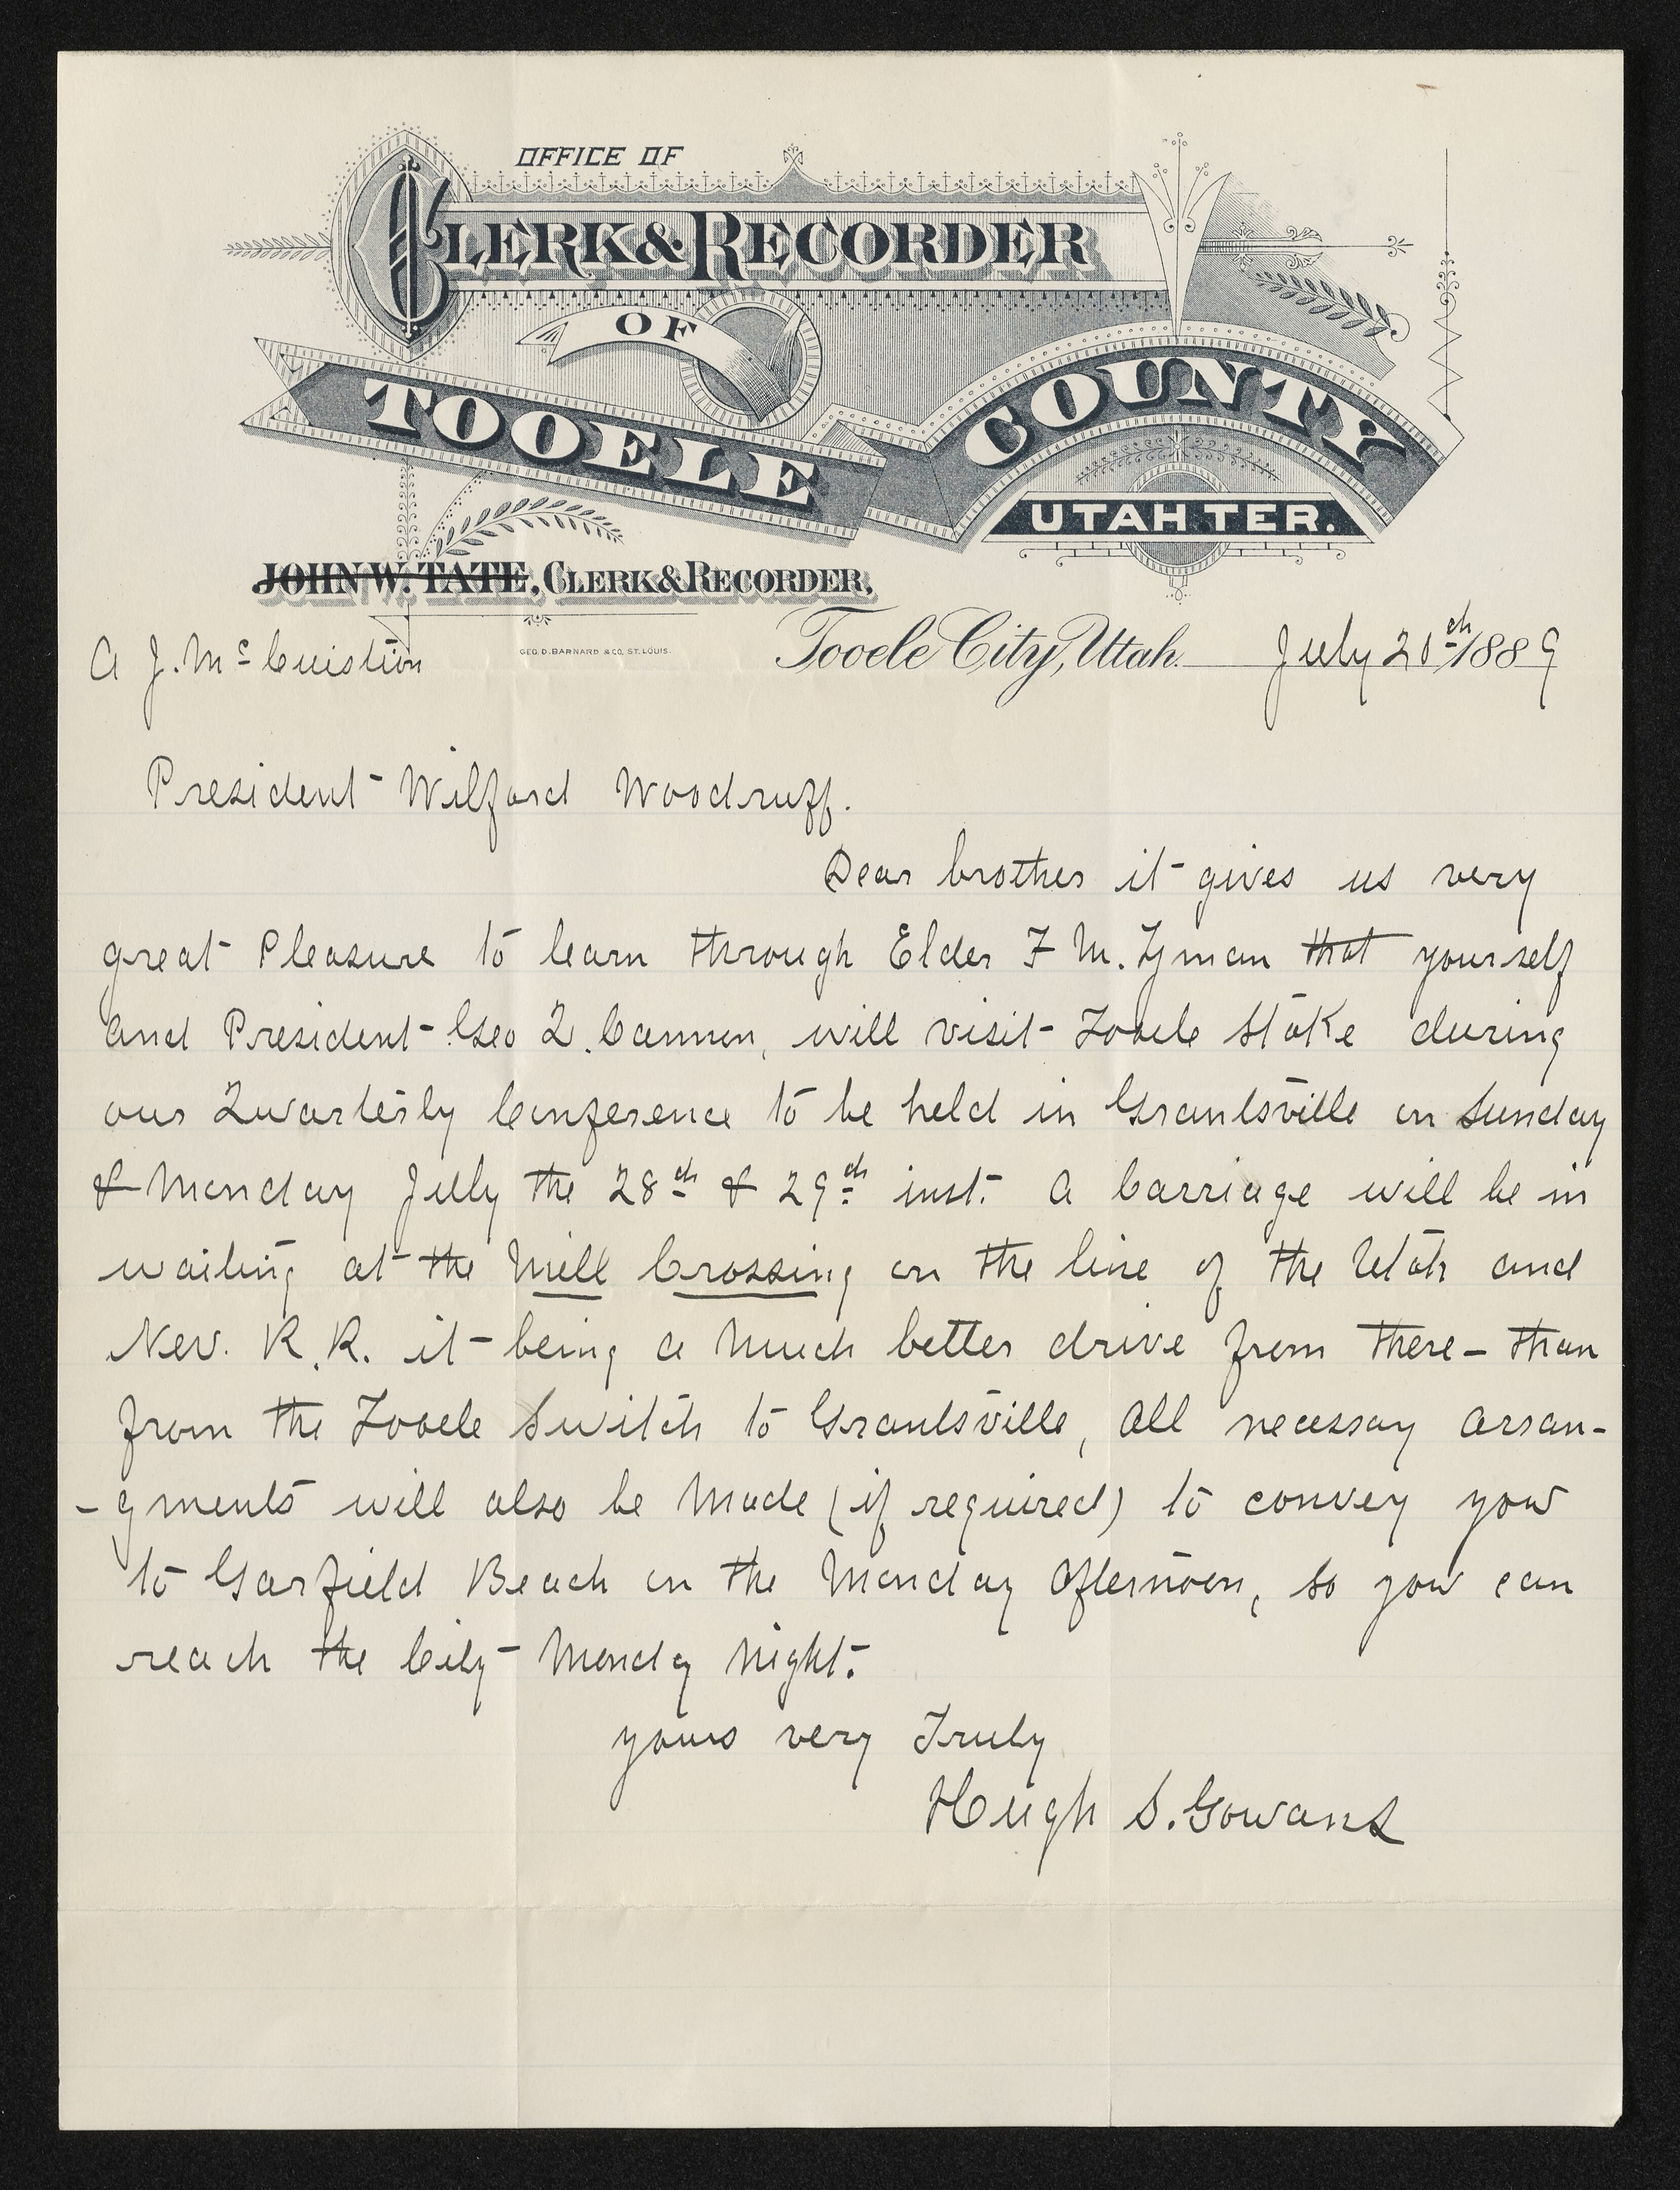 OFFICE OF
CLERK & RECORDER
OF
TOOELE COUNTY
UTAH TER.
JOHN W. TATE, CLERK & RECORDER,
GEO. D. BARNARD & CO. ST. LOUIS.
A J. Mc Cuistion
Tooele City, Utah. July 20th 1889
President Wilford Woodruff.
Dear brother it gives us very
great Pleasure to learn through Elder F M. Lyman that yourself
and President Geo Q. Cannon, will visit Tooele Stake during
our Quarterly Conference to be held in Grantsville on Sunday
& Monday July the 28th & 29th inst. A Carriage will be in
waiting at the Mill Crossing on the line of the Utah and
Nev. R. R. it being a much better drive from there – than
from the Tooele Switch to Grantsville, All necessay arran-
-gments will also be made (if required) to convey you
to Garfield Beach on the Monday Afternoon, so you can
reach the City Monday night.
yours very Truly
Hugh S. Gowans